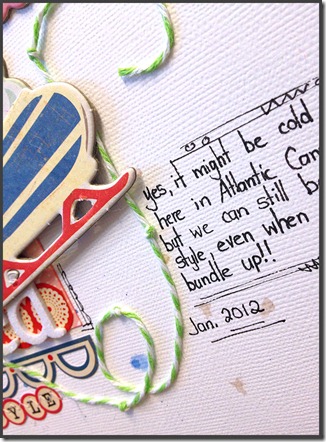 yes, it might be cold
here in Atlantic Can
but we can still b
style even when
bundle up!!
Jan. 2012
YLE